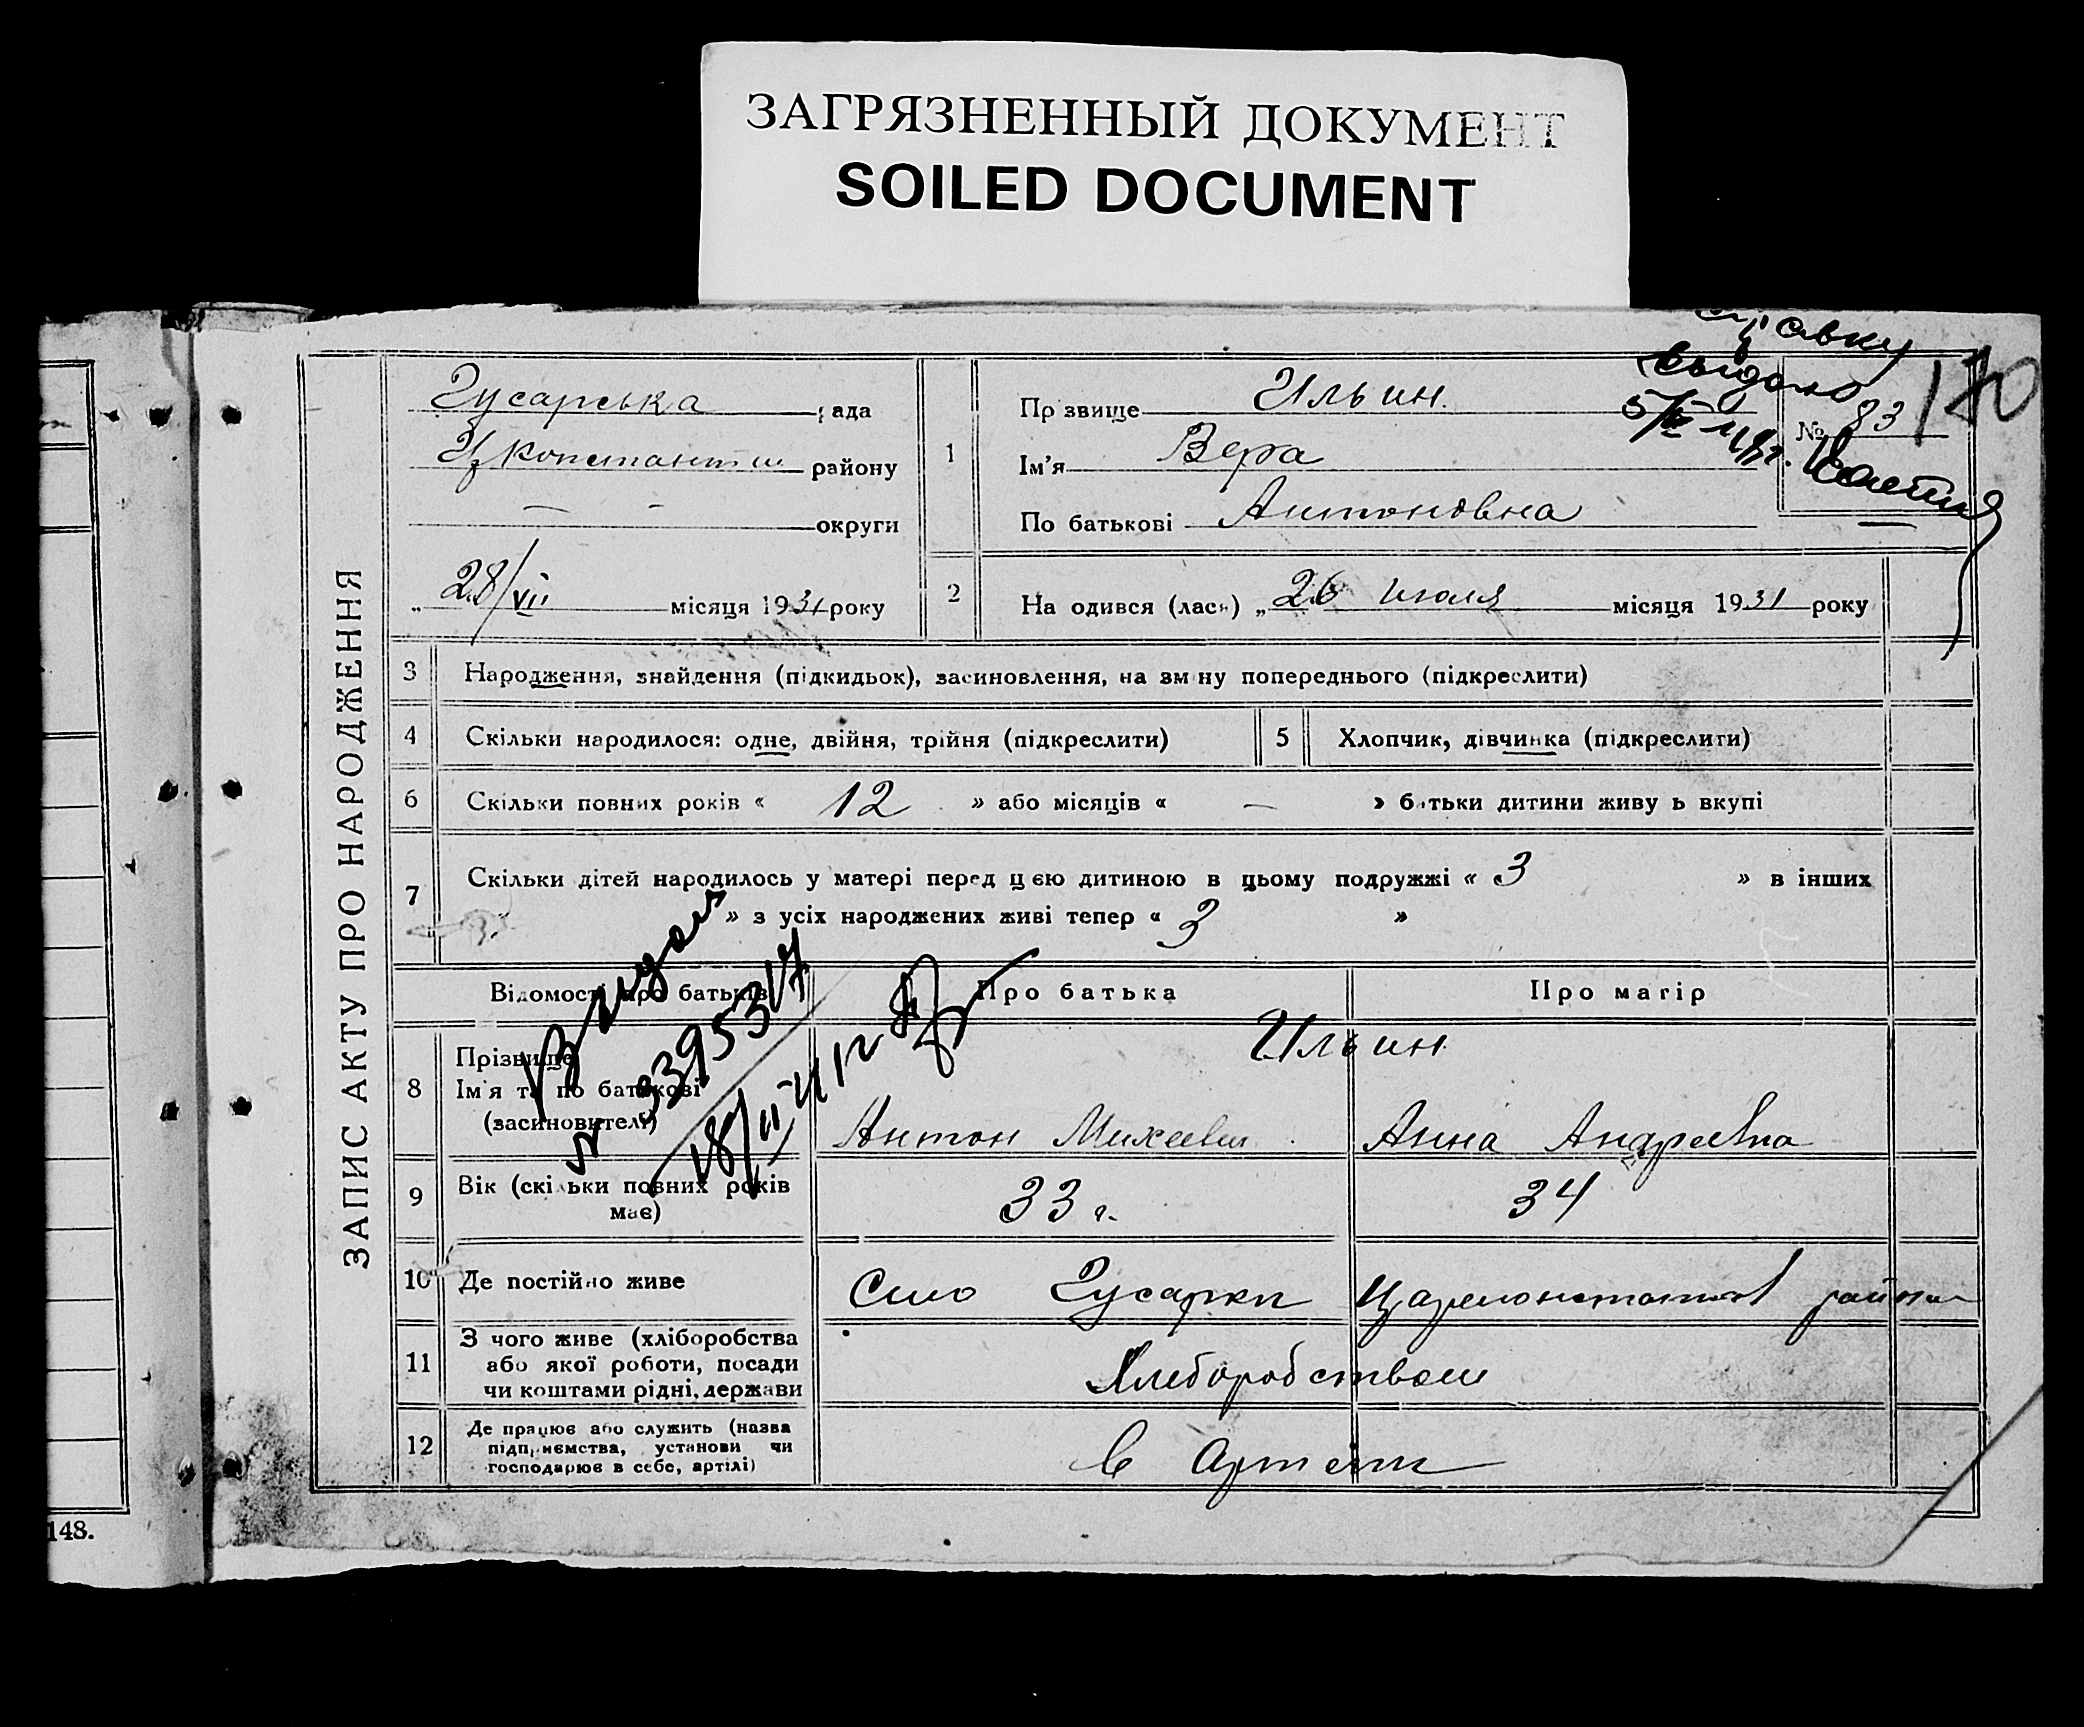 ЗАГРЯЗНЕННЫЙ ДОКУМЕНТ
SOILED DOCUMENT
ЗАПИС АКТУ ПРО НАРОДЖЕННЯ
Гусарська рада
Ц/Константин району
— — округи
„28/VII місяця 1931 року
1
Прізвище Ильин
Ім'я Вера
По батькові Антоновна
справку
выдано
5/
№ 83
170
2
На одився (лась) „26 июля місяця 1931 року
3 Народження, знайдення (підкидьок), засиновлення, на зміну попереднього (підкреслити)
4 Скільки народилося: одне, двійня, трійня (підкреслити)
5 Хлопчик, дівчинка (підкреслити)
6 Скільки повних років « 12 » або місяців « — » батьки дитини живуть вкупі
7 Скільки дітей народилось у матері перед цією дитиною в цьому подружжі « 3 » в інших
» з усіх народжених живі тепер « 3 »
Відомості про батьків
Про батька
Про матір
8 Прізвище
Ім'я та по батькові
(засиновителі)
Ильин
Антон Михеевич
Анна Андреевна
Выдан
№ 3395317
18/II 41 г
9 Вік (скільки повних років
має)
33 г.
34
10 Де постійно живе
Село Гусарки Цареконстантинов района
11 З чого живе (хліборобства
або якої роботи, посади
чи коштами рідні, держави
Хлеборобством
12 Де працює або служить (назва
підприємства, установи чи
господарює в себе, артілі)
в Артели
148.